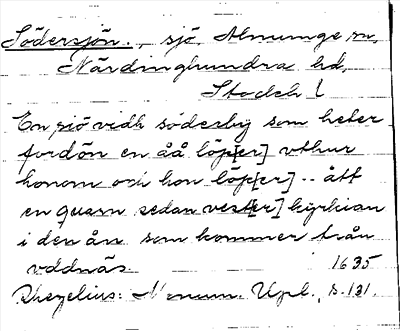 Södersjön., sjö, Almunge sn,
Närdinghundra hd,
Stockh l
En siö vidh söderby som heter
fordön en åå löp[er] vthur
honom och hon löp[er] -- ått
en quarn sedan vest[er] kyrkian
i den ån som kommer från
vddnäs. 1635
Rhezelius: Monum. Upl., s. 131.